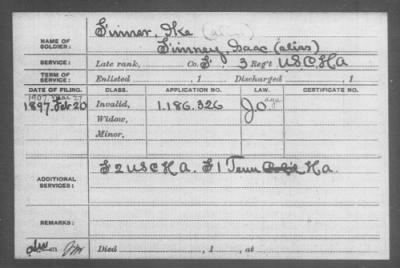 NAME OF SOLDIER: Simner, Ike (alias)
Simney, Isaac (alias)
SERVICE: Late rank, Co. E. 3 Reg't U.S.C.H.A
TERM OF SERVICE: Enlisted , 1 Discharged , 1
DATE OF FILING. CLASS. APPLICATION NO. LAW. CERTIFICATE NO.
1897. Feb 20 Invalid, 1.186.326
Widow,
Minor,
ADDITIONAL SERVICES: E 2 U.S.C.H.A. E 1 Tenn H.A.
REMARKS:
Died , 1 , at